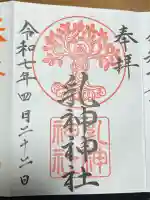 奉拝
乳神神社
令和七年四月二十六日